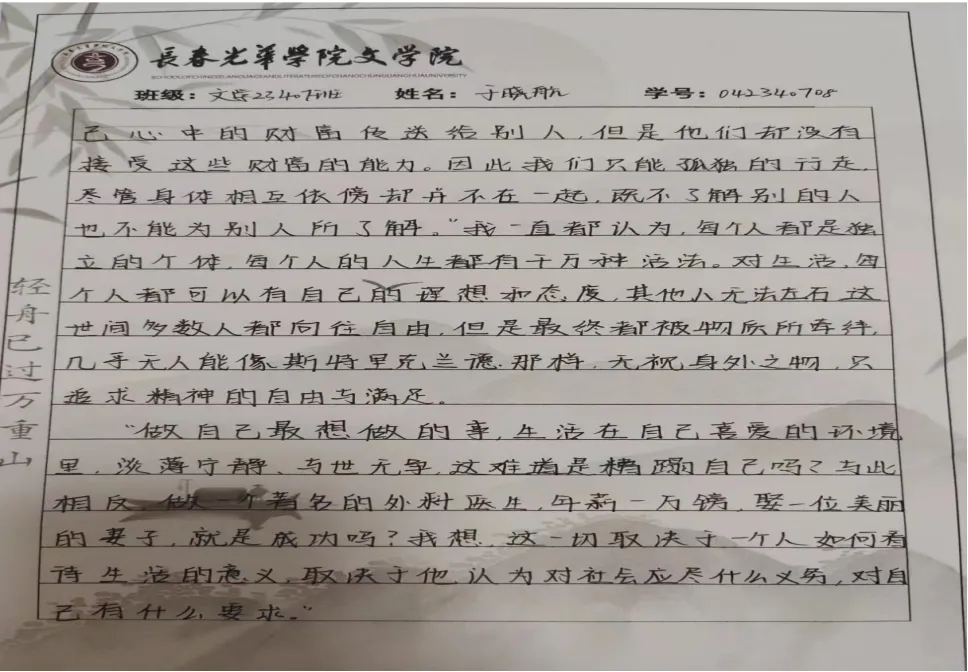 長春光華學院文学院
SCHOOLOFCHINESELANGUAGEANDLITERATUREOFCHANGCHUNGUANGHUAUNIVERSITY
班级：文学23407班 姓名：于晓航 学号：042340708
己心中的财富传送给别人，但是他们却没有
接受这些财富的能力。因此我们只能孤独的行走，
尽管身体相互依傍却并不在一起，既不了解别的人
也不能为别人所了解。”我一直都认为，每个人都是独
立的个体，每个人的人生都有千万种活法。对生活，每
个人都可以有自己的理想和态度，其他人无法左右。这
世间多数人都向往自由，但是最终都被物质所牵绊，
几乎无人能像斯特里克兰德那样，无视身外之物，只
追求精神的自由与满足。
“做自己最想做的事，生活在自己喜爱的环境
里，淡薄宁静、与世无争，这难道是糟蹋自己吗？与此
相反，做一个著名的外科医生，年薪一万镑，娶一位美丽
的妻子，就是成功吗？我想，这一切取决于一个人如何看
待生活的意义，取决于他认为对社会应尽什么义务，对自
己有什么要求。”
轻舟已过万重山